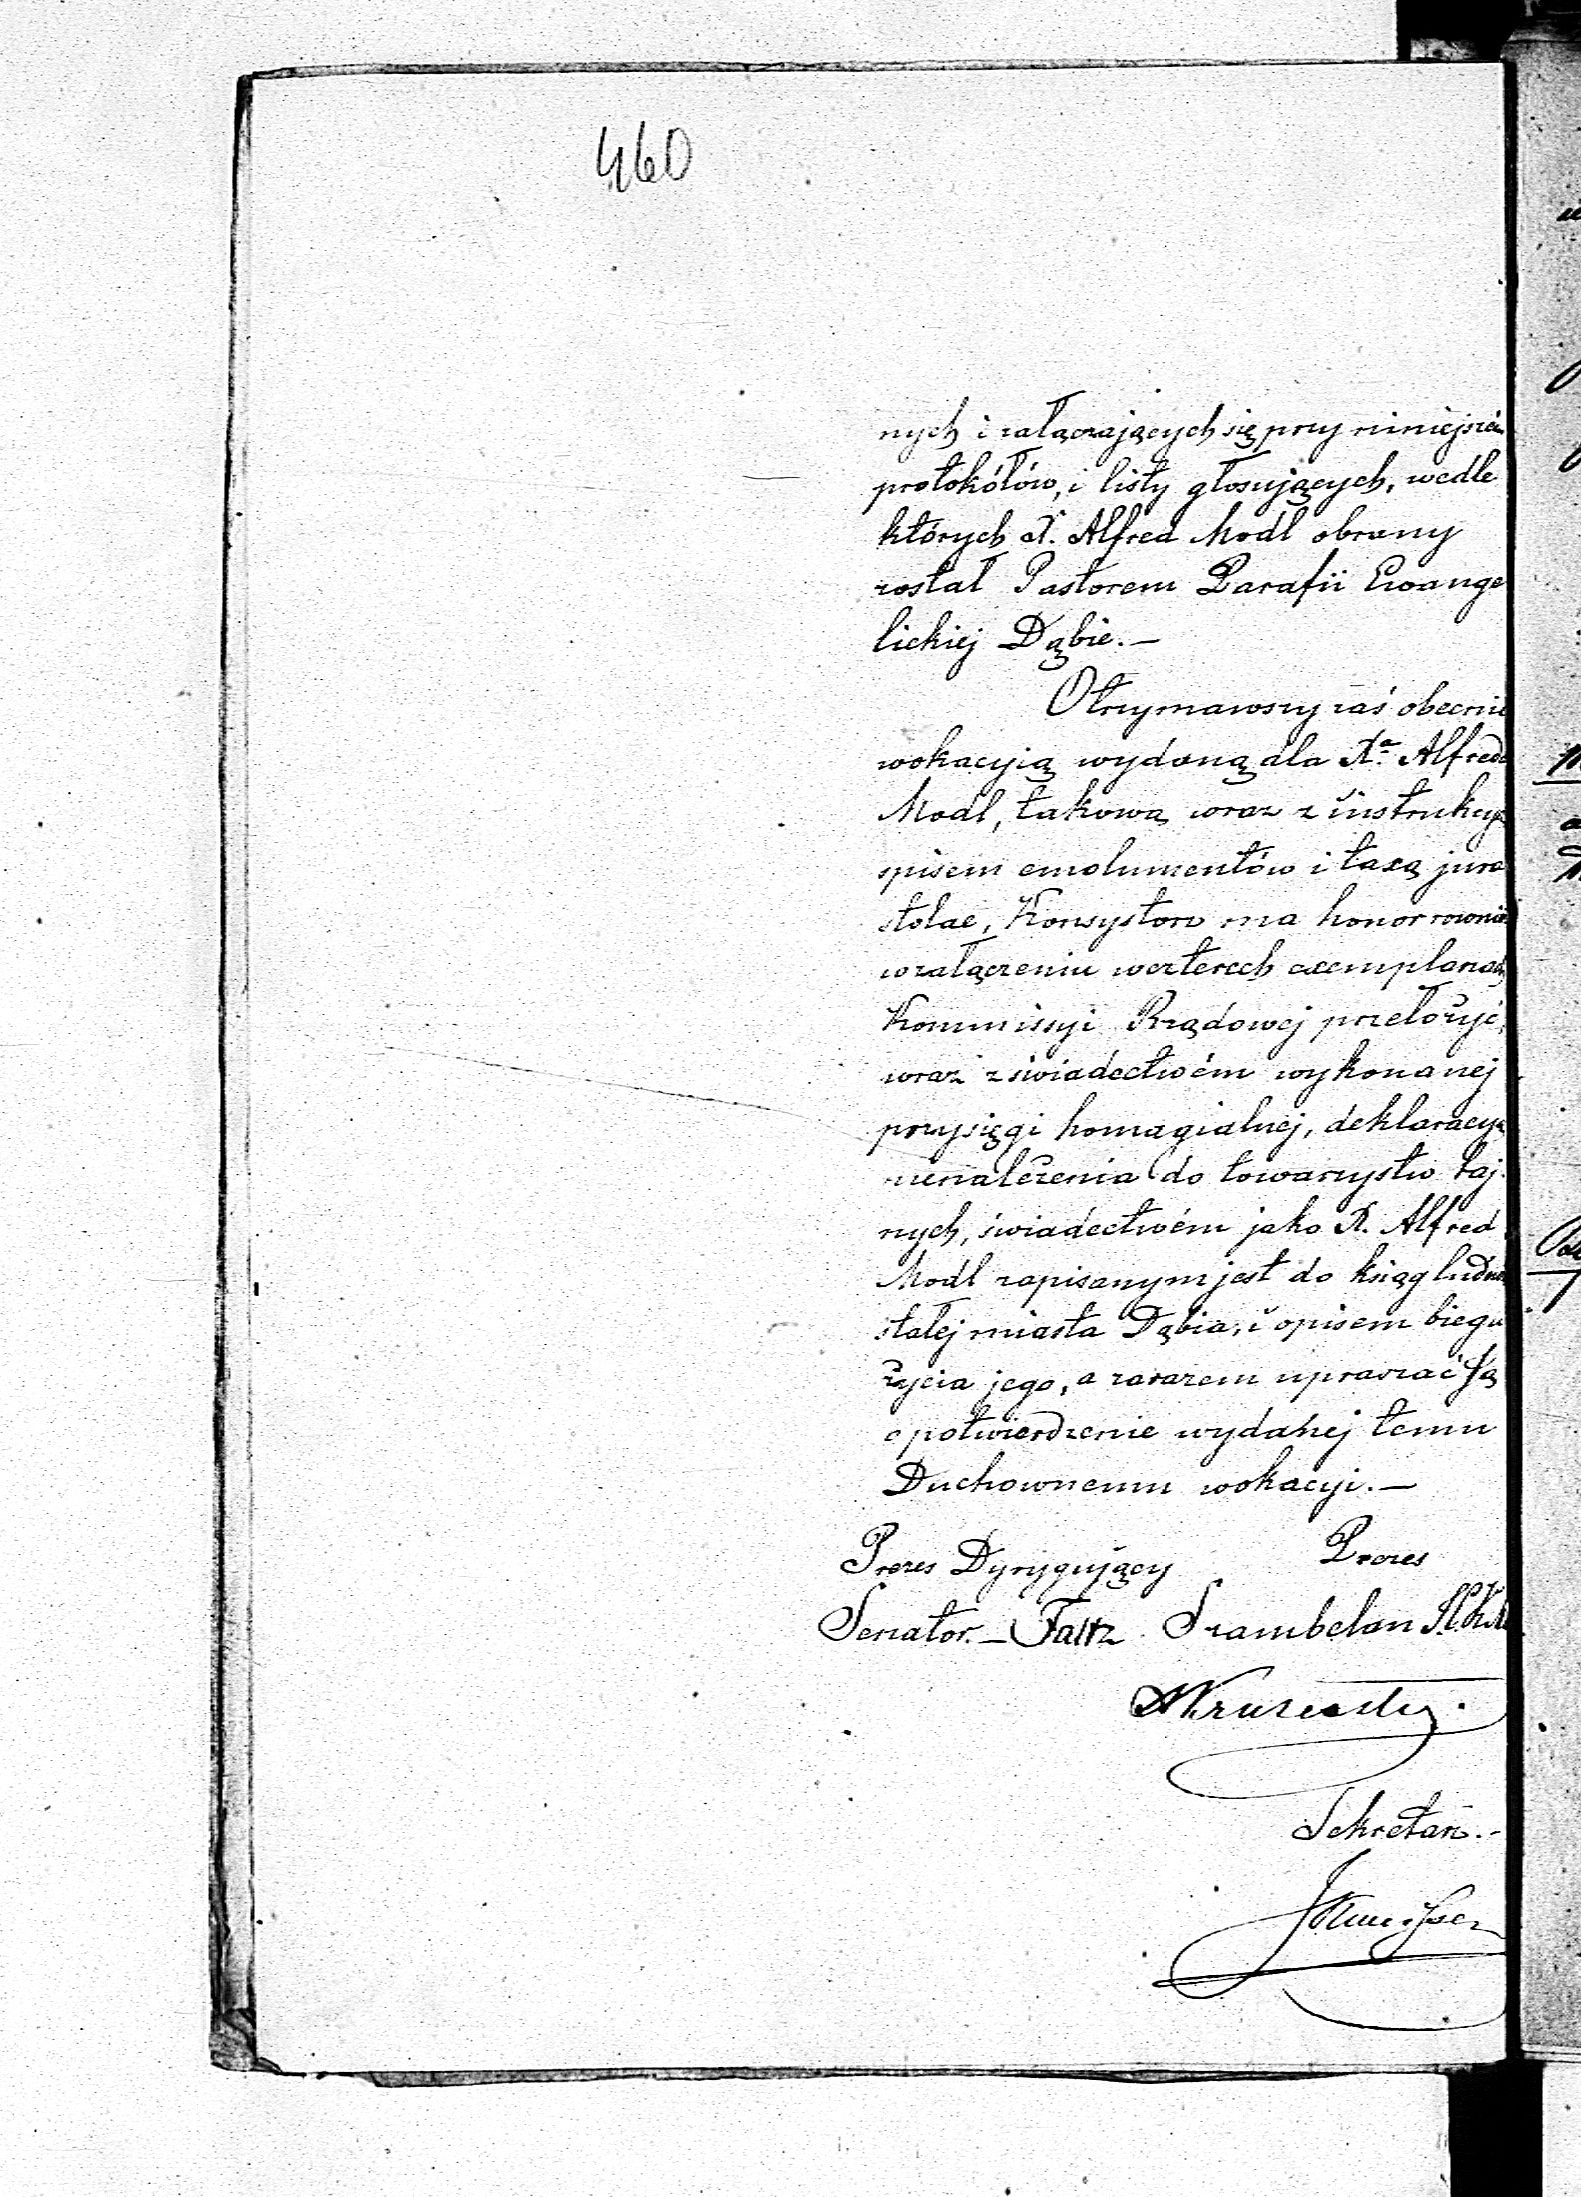 460
nych i załączających się przy niniejszém
protokółów, i listy głosujących, wedle
których X. Alfred Modl obrany
został Pastorem Parafii Ewange
lickiej Dąbie. —
Otrzymawszy zaś obecnie
wokacyią wydaną dla Xa Alfreda
Modl, takową wraz z instrukcyą
spisem emolumentów i taxą jura
stolae, Konsystorz ma honor rownież
w załączeniu w czterech exemplarzach
Kommissyi Rządowej przełożyć,
wraz z świadectwém wykonanej
przysięgi homagialnej, deklaracyą
nienależenia do towarzystw taj-
nych, świadectwém jako X. Alfred
Modl zapisanym jest do ksiąg ludności
stałej miasta Dąbia, i opisem biegu
życia jego, a zarazem upraszać Ją
o potwierdzenie wydanej temu
Duchownemu wokacyi. —
Prezes Dyrygujący Prezes
Senator. — Faltz Szambelan
Sekretarz. -